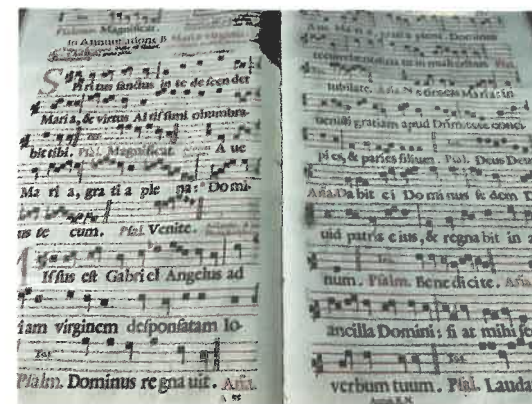 Psalm. Magnificat.
In Annuntatione B. Mariæ virginis
SPiritus sanctus in te descendet
Maria, & virtus Altissimi obumbra-
bit tibi. Psal. Magnificat. A ue
Ma ri a, gra ti a ple na: Domi-
us te cum. Psal. Venite.
MIssus est Gabriel Angelus ad
iam virginem desponsatam Io-
Psalm. Dominus re gna uit. Aña.
Dominus
tecum: in mulieribus Psal.
iubilate. Aña. Ne timeas Maria: in
uenisti gratiam apud Dñm: ecce conci-
pi es, & paries filium. Psal. Deus Deu
Aña. Da bit ei Do mi nus se dem
uid patris e ius, & regna bit in
num. Psalm. Bene dicite. Aña
ancilla Domini: fi at mihi se
verbum tuum. Psal. Lauda